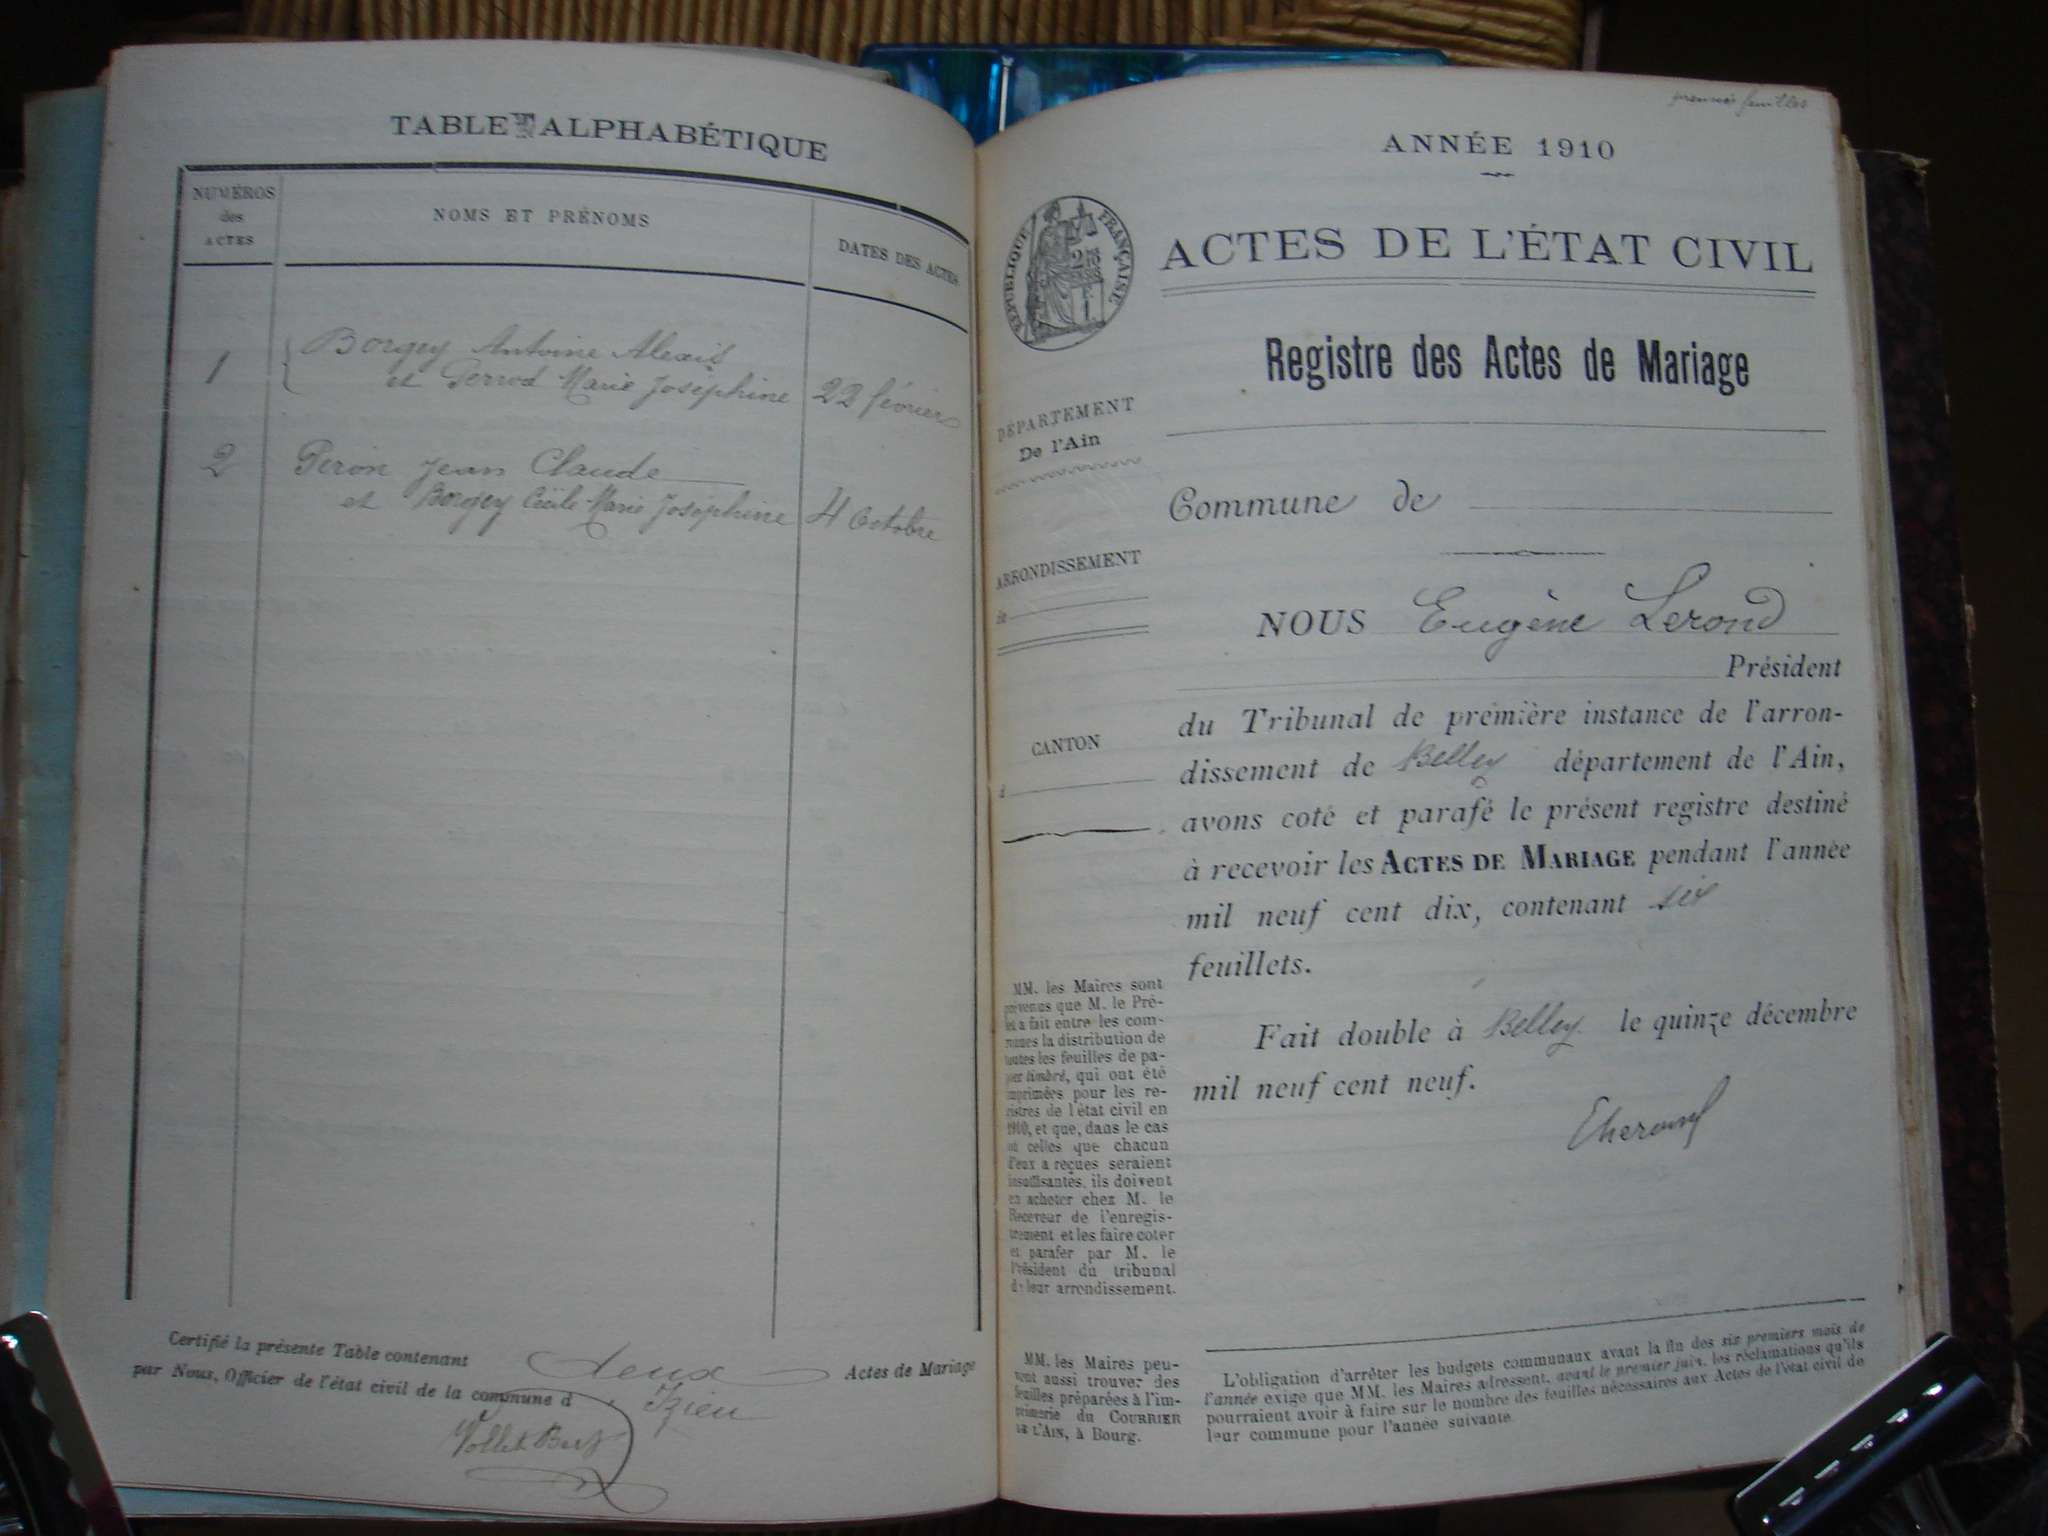 TABLE ALPHABÉTIQUE
NUMÉROS
des
ACTES
NOMS ET PRÉNOMS
DATES DES ACTES
1
Borgey Antoine Alexis
et Perrod Marie Joséphine
22 février
2
Peron Jean Claude
et Borgey Cécile Marie Joséphine
4 Octobre
Certifié la présente Table contenant deux Actes de Mariage
par Nous, Officier de l'état civil de la commune d'Izieu
premier feuillet
ANNÉE 1910
RÉPUBLIQUE FRANÇAISE
ACTES DE L'ÉTAT CIVIL
Registre des Actes de Mariage
DÉPARTEMENT
De l'Ain
Commune de
ARRONDISSEMENT
de
NOUS Eugène Lerond
Président
du Tribunal de première instance de l'arron-
dissement de Belley département de l'Ain,
avons coté et parafé le présent registre destiné
à recevoir les ACTES DE MARIAGE pendant l'année
mil neuf cent dix, contenant six
feuillets.
Fait double à Belley le quinze décembre
mil neuf cent neuf.
CANTON
d
MM. les Maires sont
prévenus que M. le Pré-
fet a fait entre les com-
munes la distribution de
toutes les feuilles de pa-
pier timbré, qui ont été
imprimées pour les re-
gistres de l'état civil en
1910, et que, dans le cas
où celles que chacun
d'eux a reçues seraient
insuffisantes, ils doivent
en acheter chez M. le
Receveur de l'enregis-
trement et les faire coter
et parafer par M. le
Président du tribunal
de leur arrondissement.
MM. les Maires peu-
vent aussi trouver des
feuilles préparées à l'im-
primerie du COURRIER
DE L'AIN, à Bourg.
L'obligation d'arrêter les budgets communaux avant la fin des six premiers mois de
l'année exige que MM. les Maires adressent, avant le premier juin, les réclamations qu'ils
pourraient avoir à faire sur le nombre des feuilles nécessaires aux Actes de l'état civil de
leur commune pour l'année suivante.